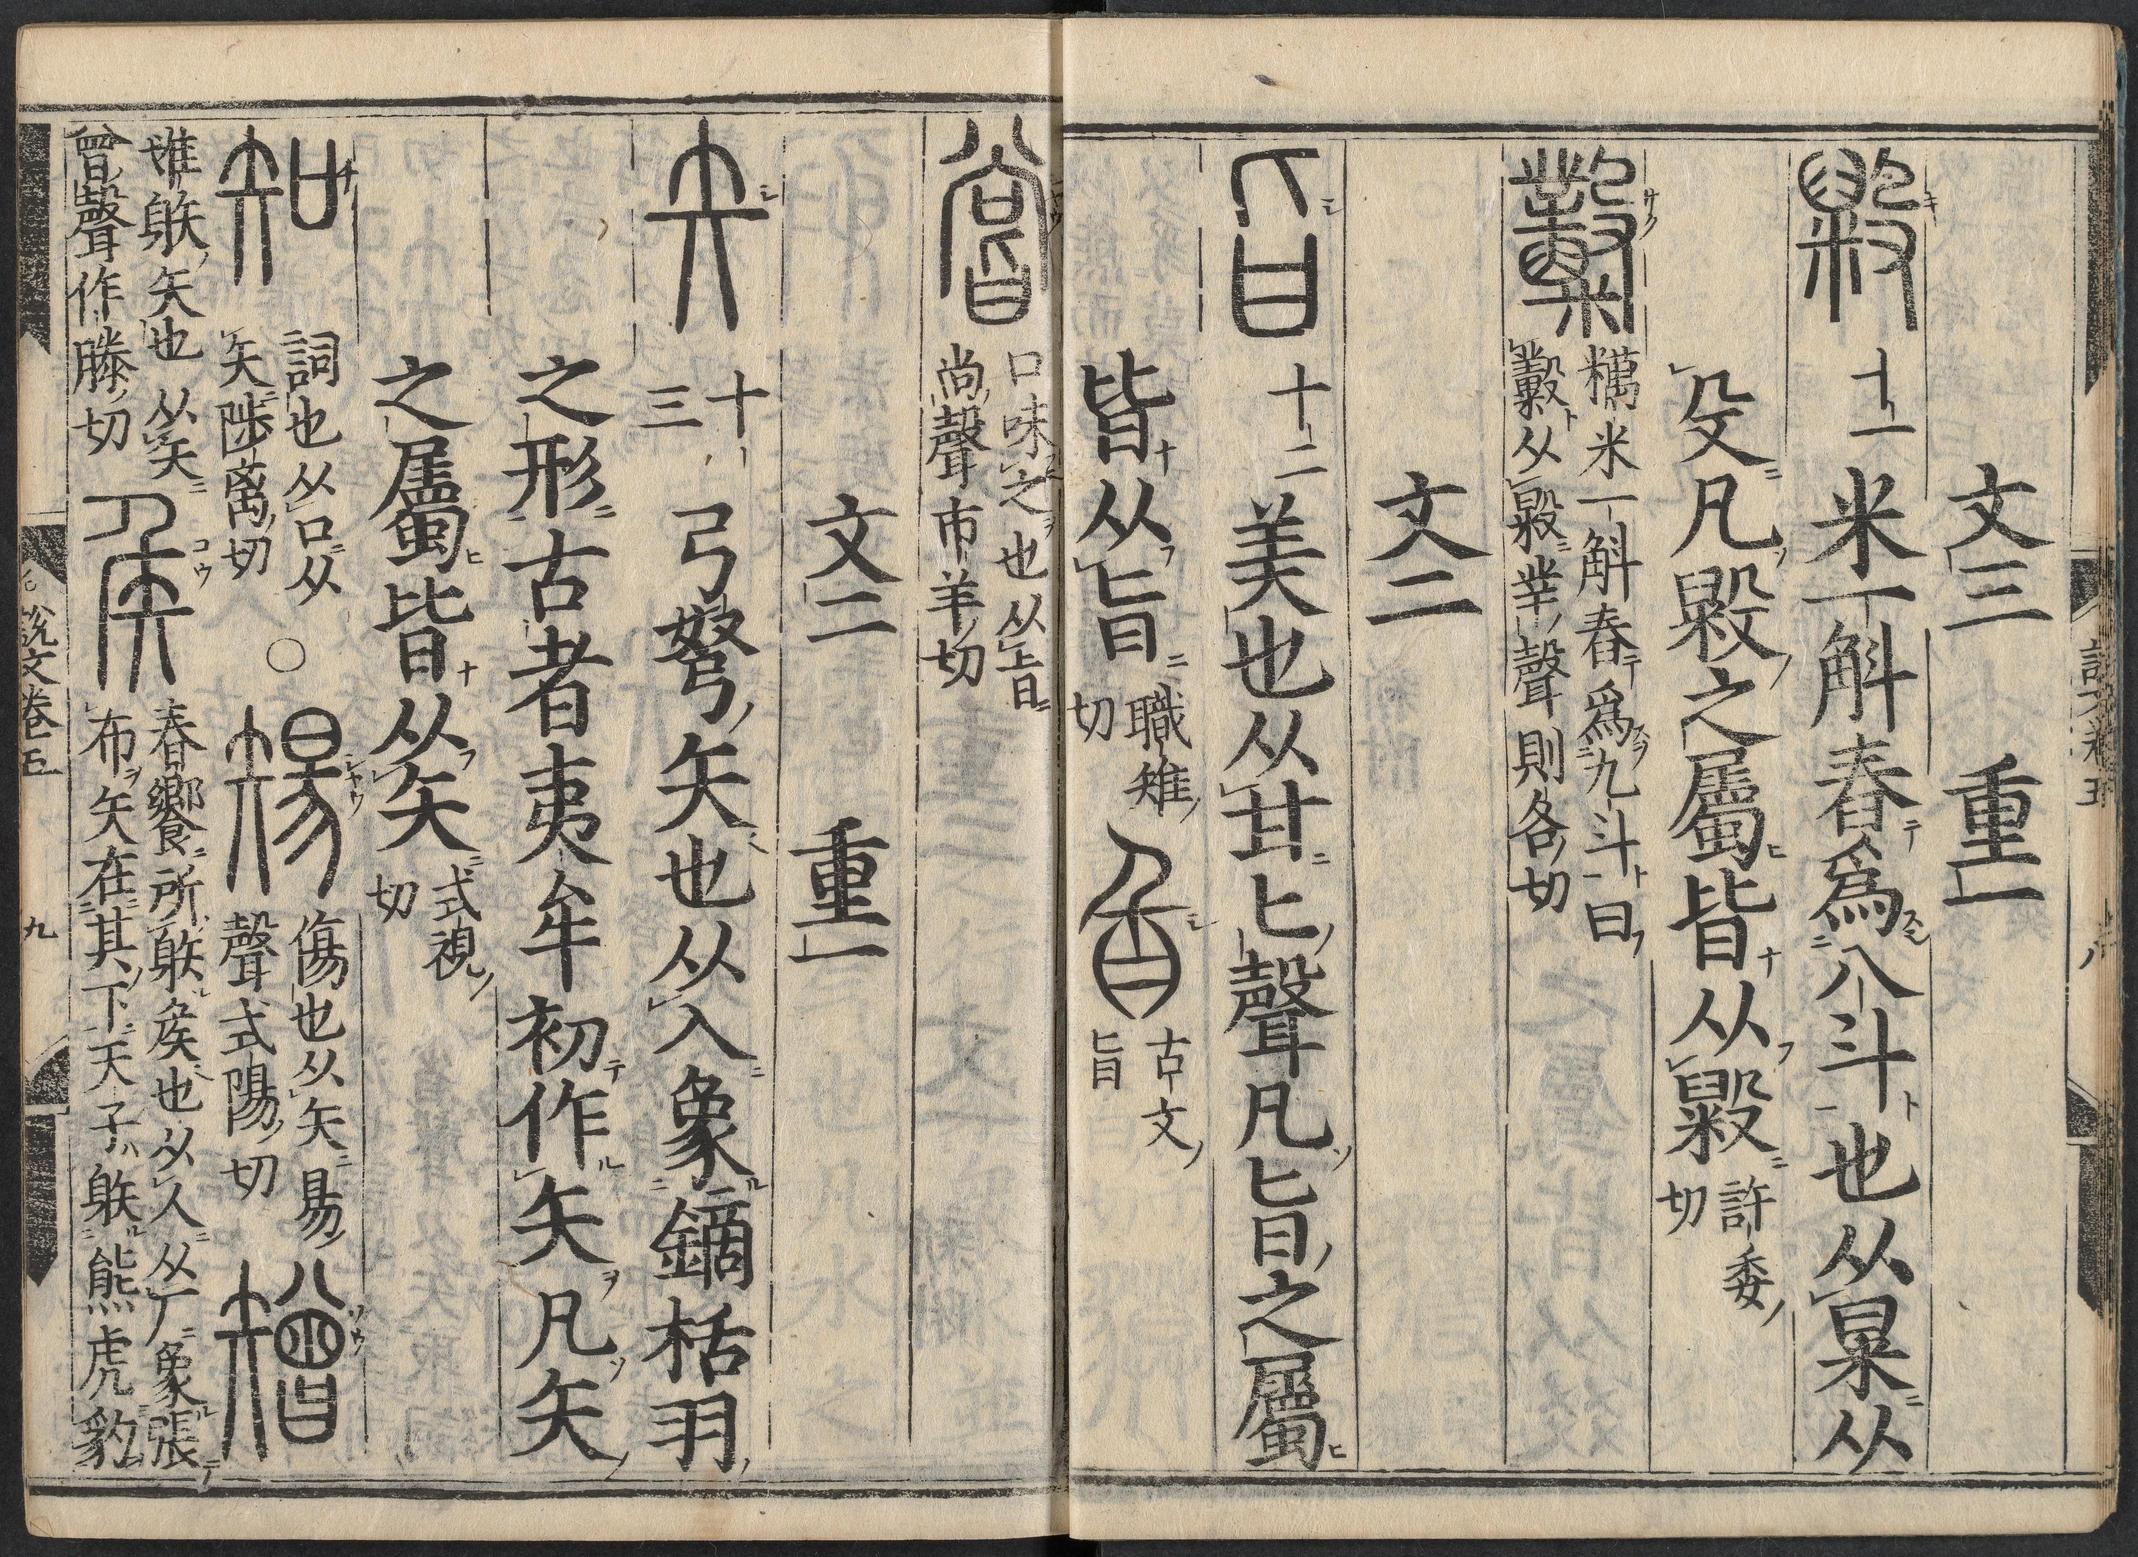 文三 重一
毇 十一 米一斛舂爲八斗也从臼米从
殳凡毇之屬皆从毇 許委切
糳 糲米一斛舂爲九斗曰
糳从毇丵聲則各切
文二
旨 十二 美也从甘匕聲凡旨之屬
皆从旨 職雉切 古文旨
嘗 口味之也从旨
尚聲市羊切
文二 重一
矢 十三 弓弩矢也从入象鏑栝羽
之形古者夷牟初作矢凡矢
之屬皆从矢 式視切
知 詞也从口从
矢陟离切
○
𥏫 傷也从矢昜
聲式陽切
矰
隿䠶矢也从矢
曾聲作滕切
矦 春饗所䠶矦也从人从厂象張
布矢在其下天子䠶熊虎豹
說文卷五 八
說文卷五 九